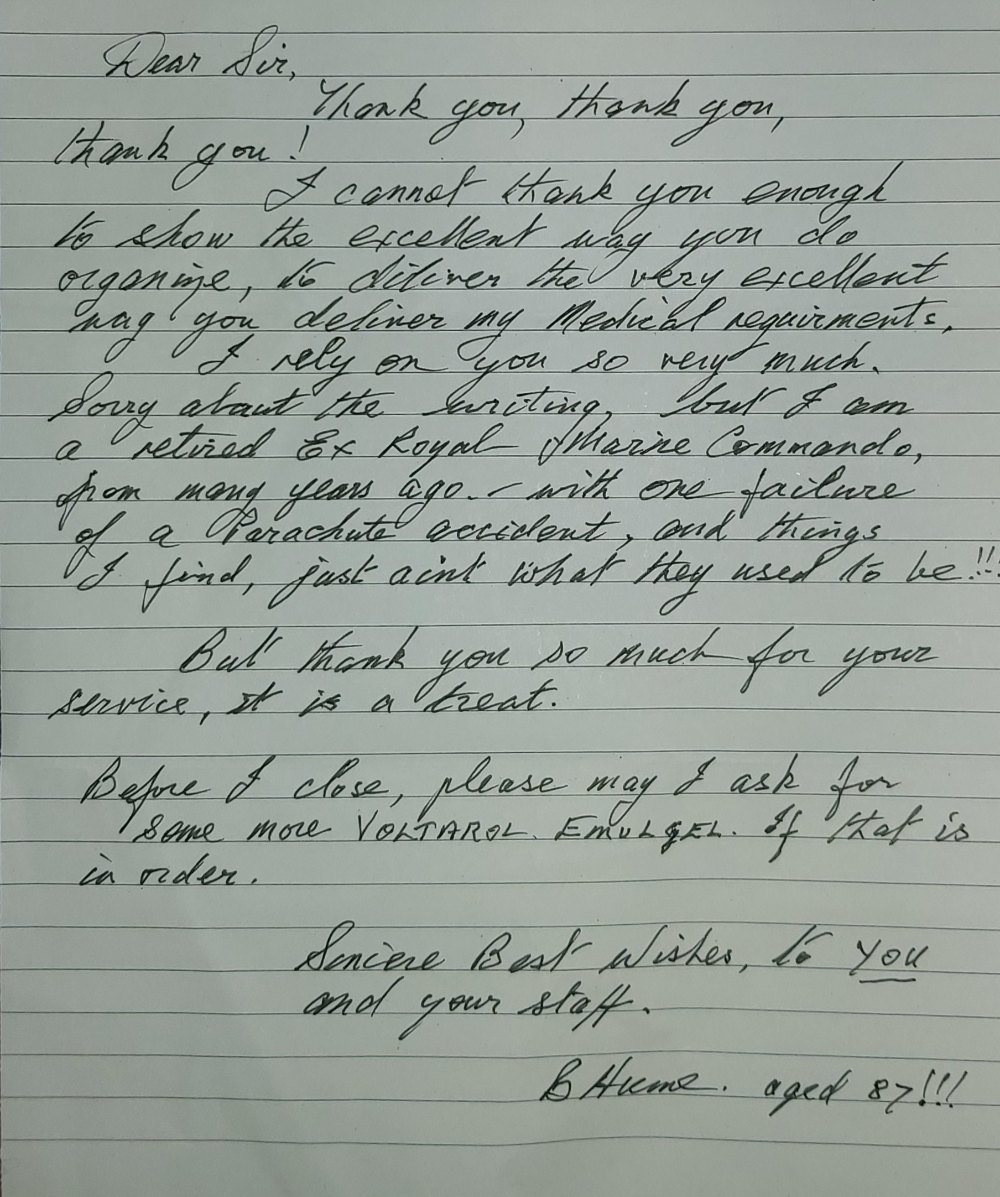 Dear Sir,
Thank you, thank you,
thank you!
I cannot thank you enough
to show the excellent way you do
organize, to diliver the very excellent
way you deliver my Medical requirments.
I rely on you so very much.
Sorry about the writing, but I am
a retired Ex Royal Marine Commando,
from many years ago. - with one failure
of a Parachute accident, and things
I find, just aint what they used to be!!!
But thank you so much for your
service, it is a treat.
Before I close, please may I ask for
some more VOLTAROL. EMULGEL. If that is
in order.
Sincere Best Wishes, to YOU
and your staff.
B Hume. aged 87!!!